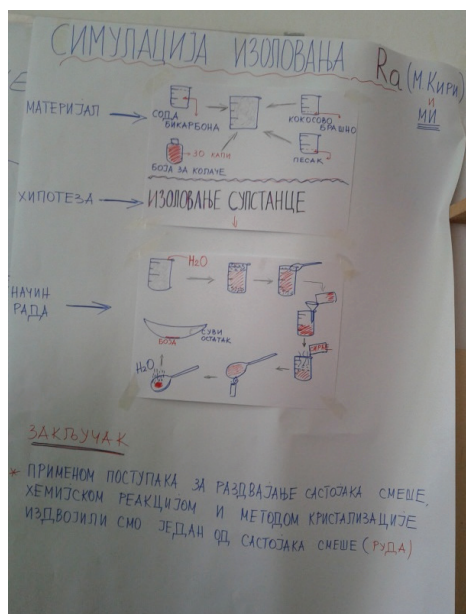 СИМУЛАЦИЈА ИЗОЛОВАЊА Ra (М.Кири)
и
МИ
МАТЕРИЈАЛ
СОДА
БИКАРБОНА
КОКОСОВО
БРАШНО
30 КАПИ
ПЕСАК
БОЈА ЗА КОЛАЧЕ
ХИПОТЕЗА
ИЗОЛОВАЊЕ СУПСТАНЦЕ
H2O
НАЧИН
РАДА
СУВИ
ОСТАТАК
БОЈА
H2O
ЗАКЉУЧАК
* ПРИМЕНОМ ПОСТУПАКА ЗА РАЗДВАЈАЊЕ САСТОЈАКА СМЕШЕ,
ХЕМИЈСКОМ РЕАКЦИЈОМ И МЕТОДОМ КРИСТАЛИЗАЦИЈЕ
ИЗДВОЈИЛИ СМО ЈЕДАН ОД САСТОЈАКА СМЕШЕ (РУДА)